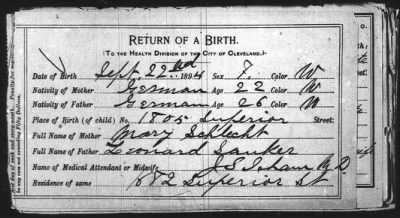 RETURN OF A BIRTH.
(To the Health Division of the City of Cleveland.)
Date of Birth Sept. 22nd 1894 Sex F. Color W
Nativity of Mother German Age 22 Color W
Nativity of Father German Age 26 Color W
Place of Birth (of child) No. 1805 Superior Street
Full Name of Mother Mary Schlecht
Full Name of Father Leonard Sauker
Name of Medical Attendant or Midwife J S Isham M.D.
Residence of same 682 Superior St